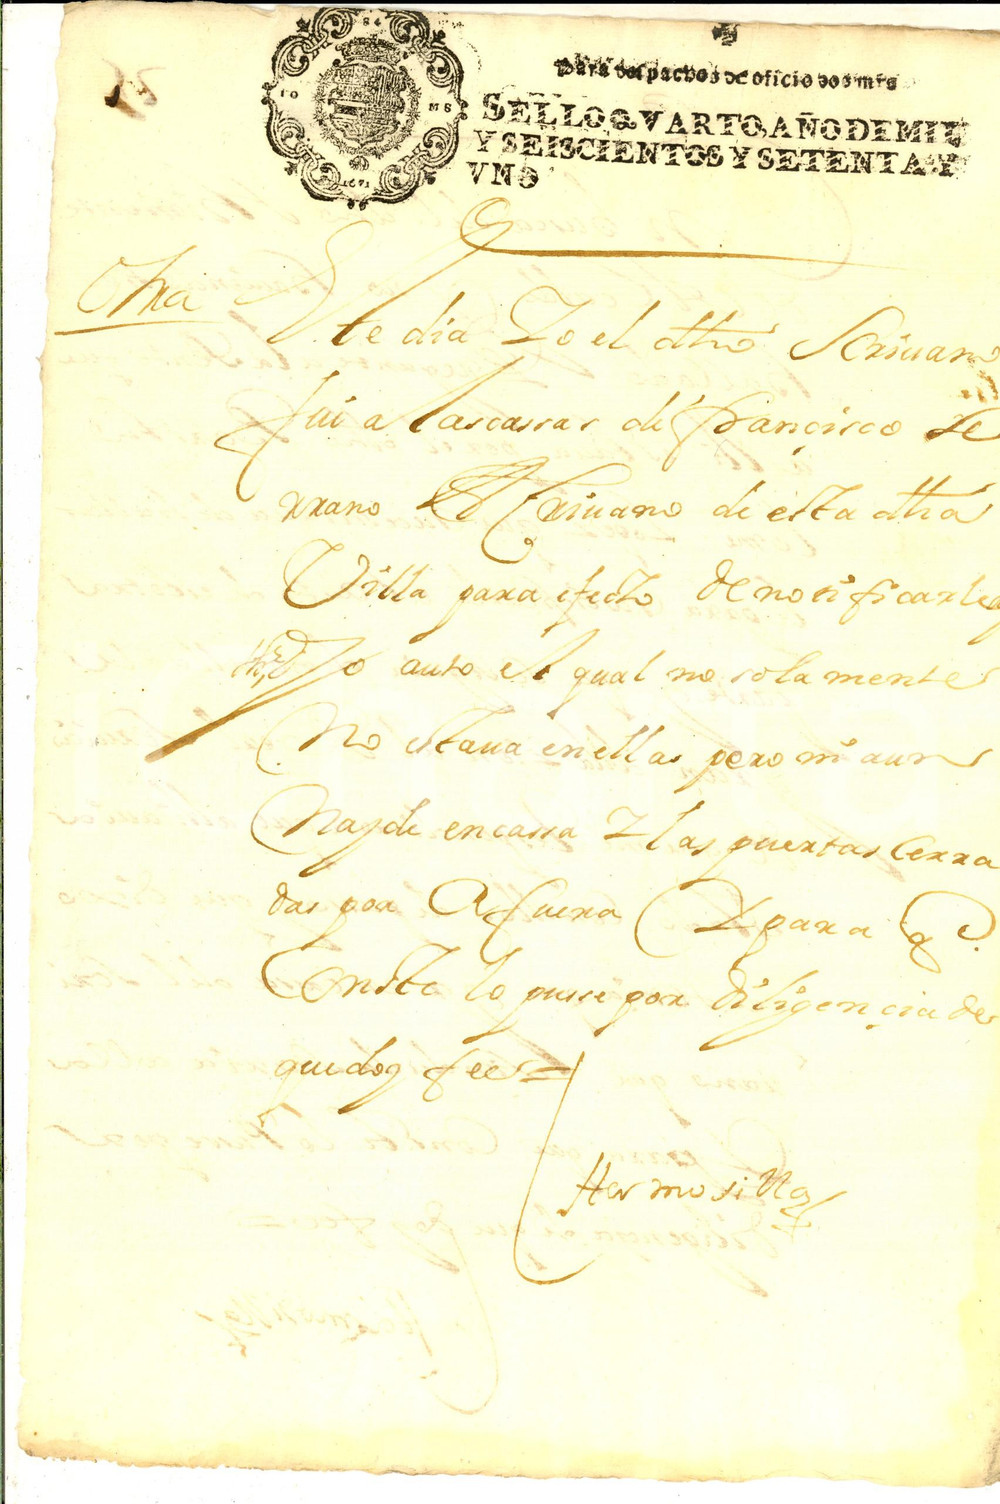 Para despachos de oficio dos mrs
SELLO QVARTO, AÑO DE MIL
Y SEISCIENTOS Y SETENTA Y
VNO
1671
Otra
Este dia Yo el dho Scriuano
fui a las cassas de françisco Se
rrano Scriuano de esta dha
Villa para efecto de notificarle
dho auto el qual no solamente
No estaua en ellas pero ni aun
Nayde en cassa Y las puertas Cerra
das por Afuera Y para q
Conste lo puse por diligençia de
que doy fee=
Hermosilla